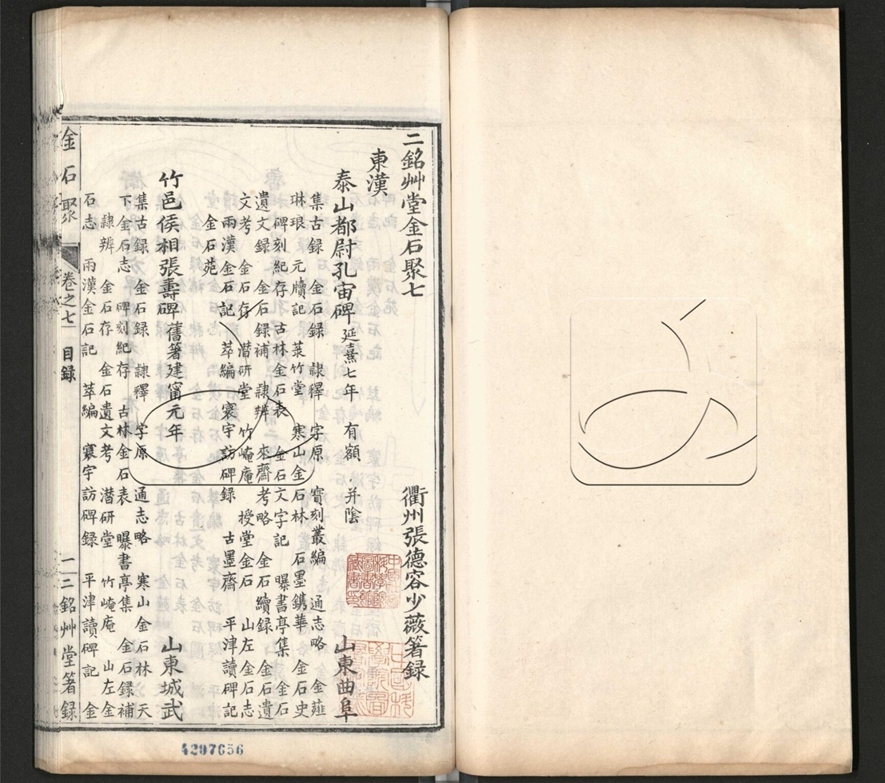 二銘艸堂金石聚七
衢州張德容少薇箸録
東漢
泰山都尉孔宙碑 延熹七年 有額 并陰 山東曲阜
集古録 金石録 隷釋 字原 寶刻叢編 通志略 金薤
琳琅 元牘記 菉竹堂 寒山金石林 石墨鐫華 金石史
碑刻紀存 古林金石表 金石文字記 曝書亭集 金石
遺文録 金石録補 隷辨 來齋考略 金石續録 金石遺
文考 金石存 潛研堂 竹崦庵 授堂金石 山左金石志
兩漢金石記 萃編 寰宇訪碑録 古墨齋 平津讀碑記
金石苑
竹邑侯相張壽碑 舊箸建甯元年 山東城武
集古録 金石録 隷釋 字原 通志略 寒山金石林 天
下金石志 碑刻紀存 古林金石表 曝書亭集 金石録補
隷辨 金石存 金石遺文考 潛研堂 竹崦庵 山左金
石志 兩漢金石記 萃編 寰宇訪碑録 平津讀碑記 金
金石聚 卷之七 目録 一 二銘艸堂箸録
4297656